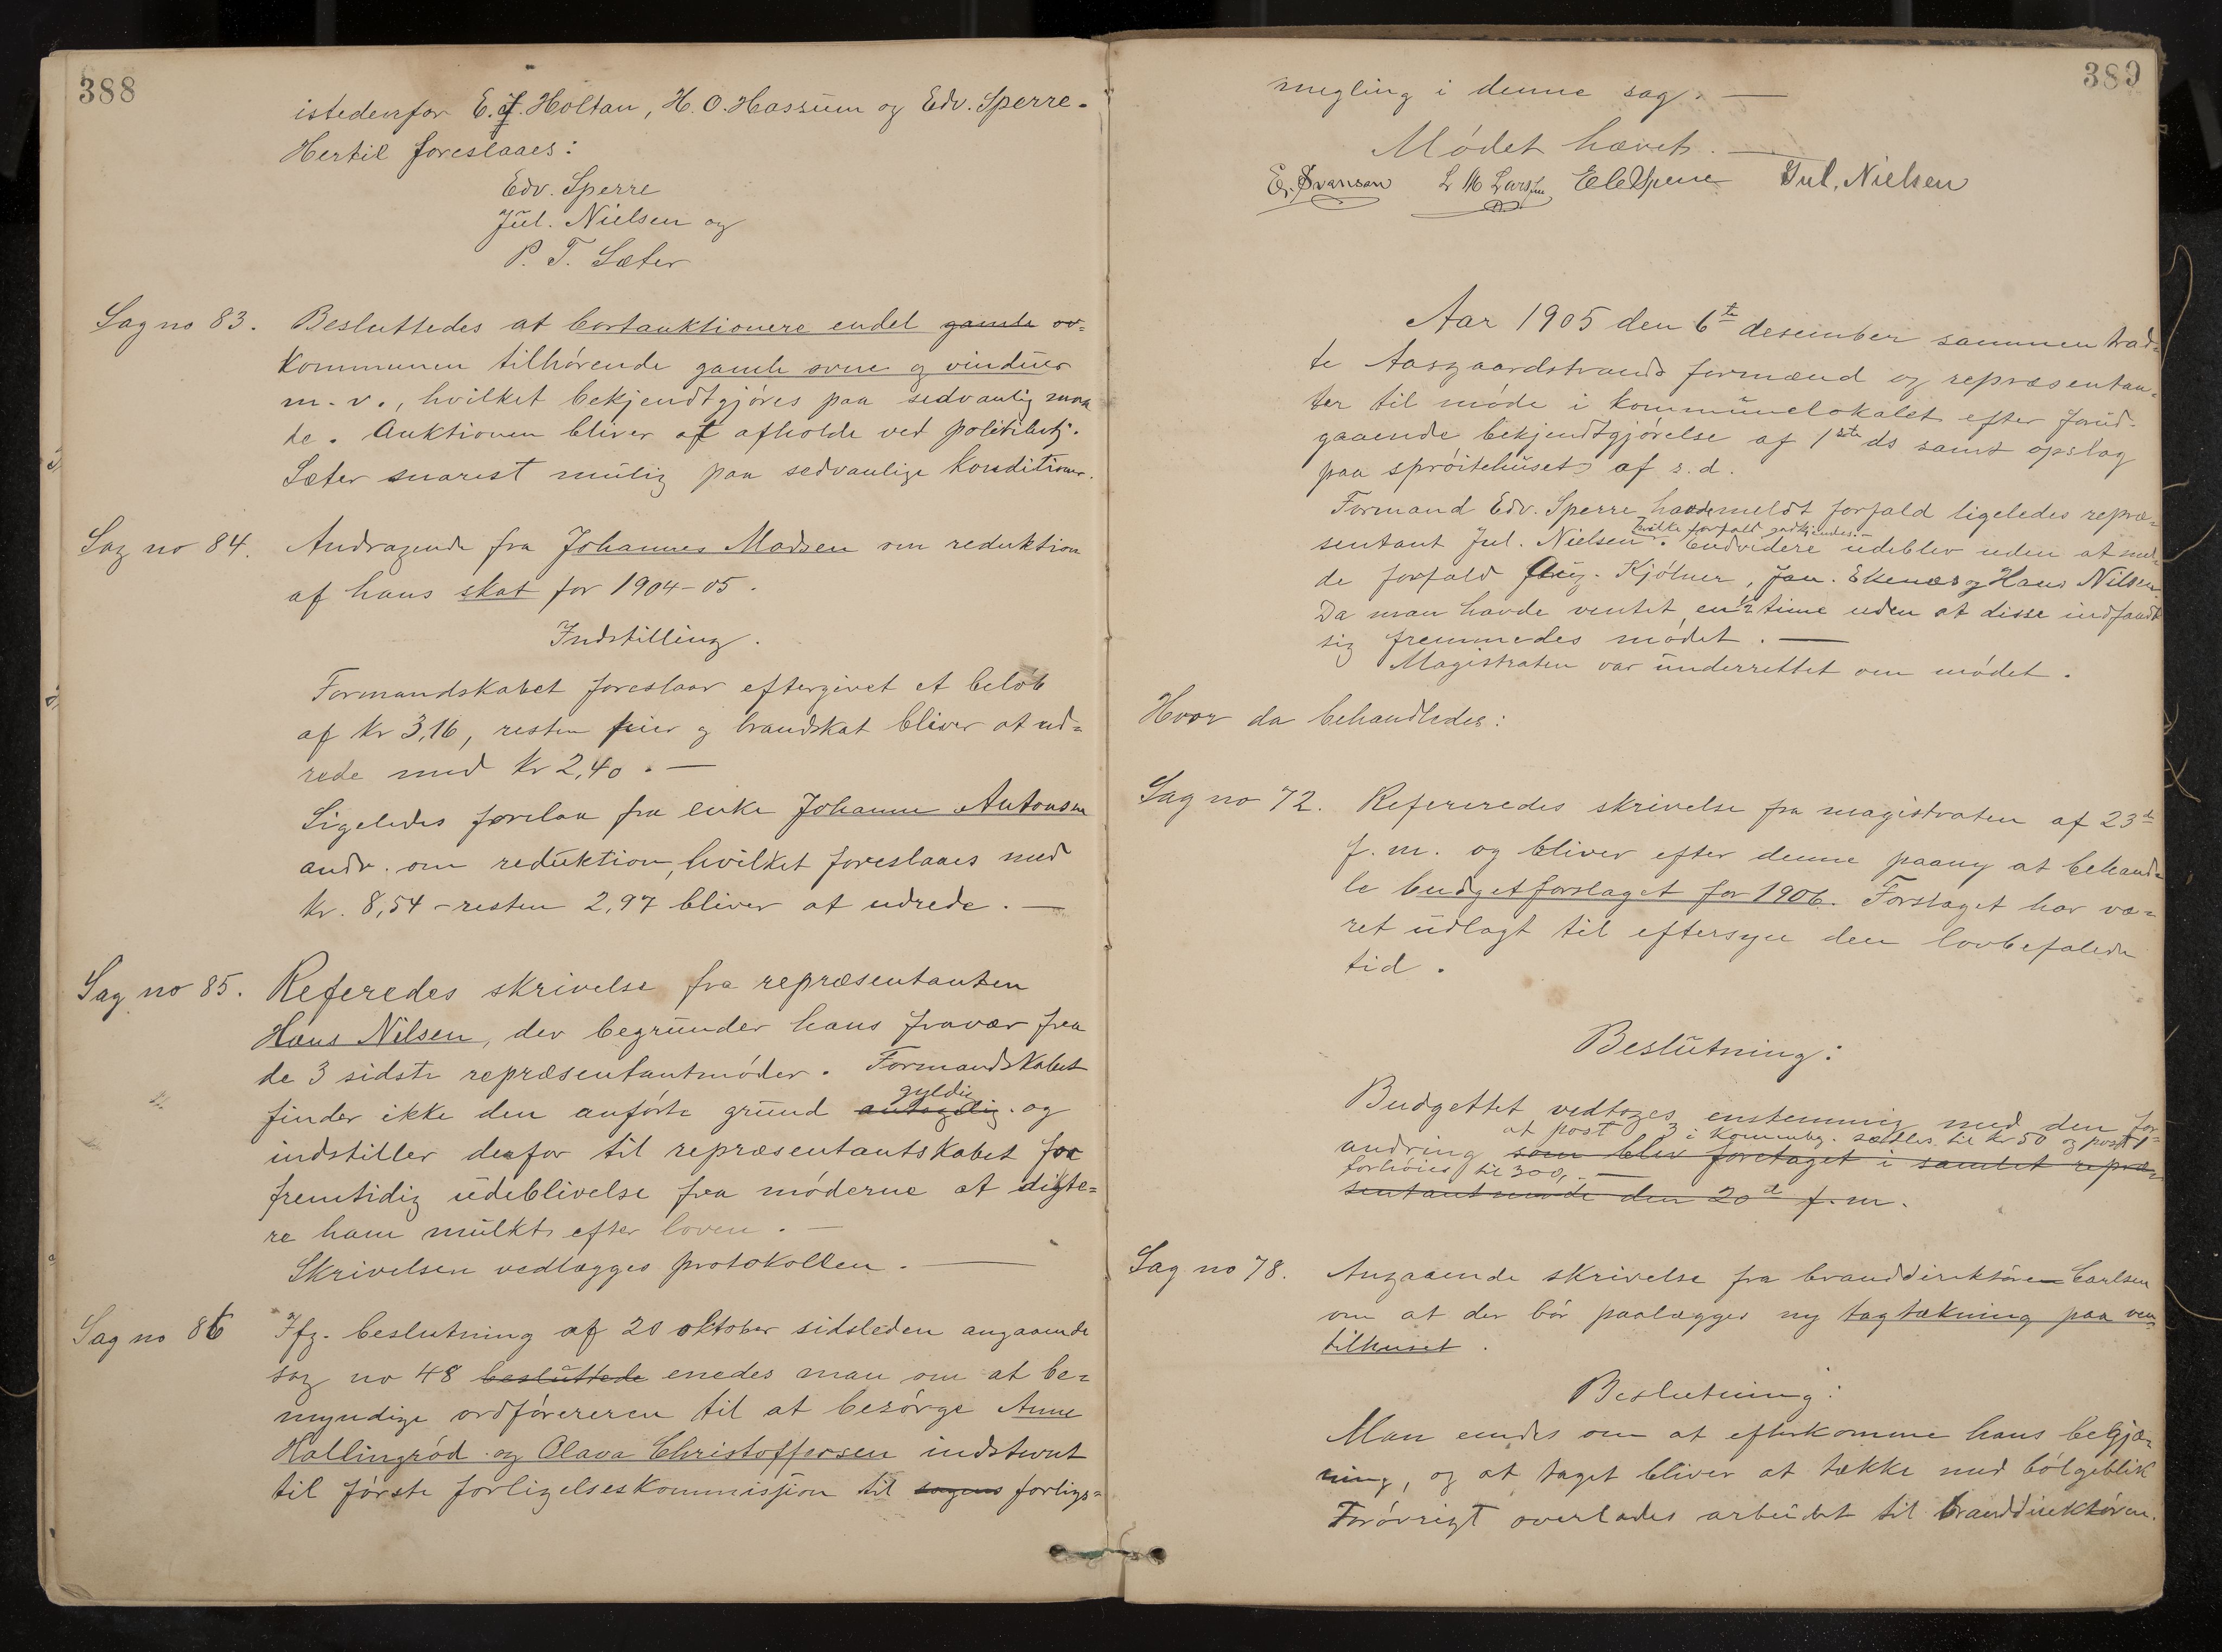 388
istedenfor E. J. Holtan, H. O. Hassum og Edv. Sperre.
Hertil foreslaaes:
Edv. Sperre
Jul. Nielsen og
P. T. Sæter
Sag no 83. Besluttedes at bortauktionere endel gamle ov=
kommunen tilhørende gamle ovne og vinduer
m. v., hvilket bekjendtgjøres paa sedvanlig maa
de. Auktionen bliver at afholde ved politibetj.
Sæter snarest mulig paa sedvanlige konditioner.
Sag no 84. Andragende fra Johannes Madsen om reduktion
af hans skat for 1904-05.
Indstilling.
Formandskabet foreslaar eftergivet et beløb
af kr 3,16, resten feier og brandskat bliver at ud=
rede med kr 2,40. —
Ligeledes forelaa fra enke Johanne Antonsen
andr. om reduktion, hvilket foreslaaes med
kr. 8,54 - resten 2,97 bliver at udrede. —
Sag no 85. Referedes skrivelse fra repræsentanten
Hans Nilsen, der begrunder hans fravær fra
de 3 sidste repræsentantmøder. Formandskabet
gyldig
finder ikke den anførte grund antagelig. og
indstiller derfor til repræsentantskabet for
fremtidig udeblivelse fra møderne at digte=
re ham mulkt efter loven. —
Skrivelsen vedlægges protokollen. —
Sag no 86 Ifg. beslutning af 20 oktober sidsleden angaaende
sag no 48 besluttede enedes man om at be=
myndige ordføreren til at besørge Anne
Hallingrød og Olava Christoffersen indstevnt
til første forligelseskommission til sagens forligs=
389
megling i denne sag. —
Mødet hævet. —
Ev. Svanson L M Larsen E C Sperre Jul. Nielsen
Aar 1905 den 6te desember sammentraad=
te Aasgaardstrands formænd og repræsentan=
ter til møde i kommunelokalet efter forud=
gaaende bekjendtgjørelse af 1ste ds samt opslag
paa sprøitehuset af s. d.
Formand Edv. Sperre havde meldt forfald ligeledes repræ=
hvilke forfald godkjendes. —
sentant Jul. Nielsen. Endvidere udeblev uden at mel=
de forfald Aug. Kjølner, Jan. Ekenæs og Hans Nilsen.
Da man havde ventet en 1/2 time uden at disse indfandt
sig fremmedes mødet. —
Magistraten var underrettet om mødet.
Hvor da behandledes:
Sag no 72. Refereredes skrivelse fra magistraten af 23de
f. m. og bliver efter denne paany at behand=
le budgetforslaget for 1906. Forslaget har væ=
ret udlagt til eftersyn den lovbefalede
tid.
Beslutning:
Budgettet vedtoges enstemmig med den for=
at post 3 i kommbg. sættes til kr 50 og post 1
andring som blev foretaget i samlet repræ=
forhøies til 300,. —
sentantmøde den 20de f. m.
Sag no 78. Angaaende skrivelse fra branddirektøren Carlsen
om at der bør paalægges ny tagtækning paa ven
tilhuset.
Beslutning:
Man enedes om at efterkomme hans begjæ=
ring, og at taget bliver at tække med bølgeblik
Forøvrigt overlades arbeidet til branddirektøren.